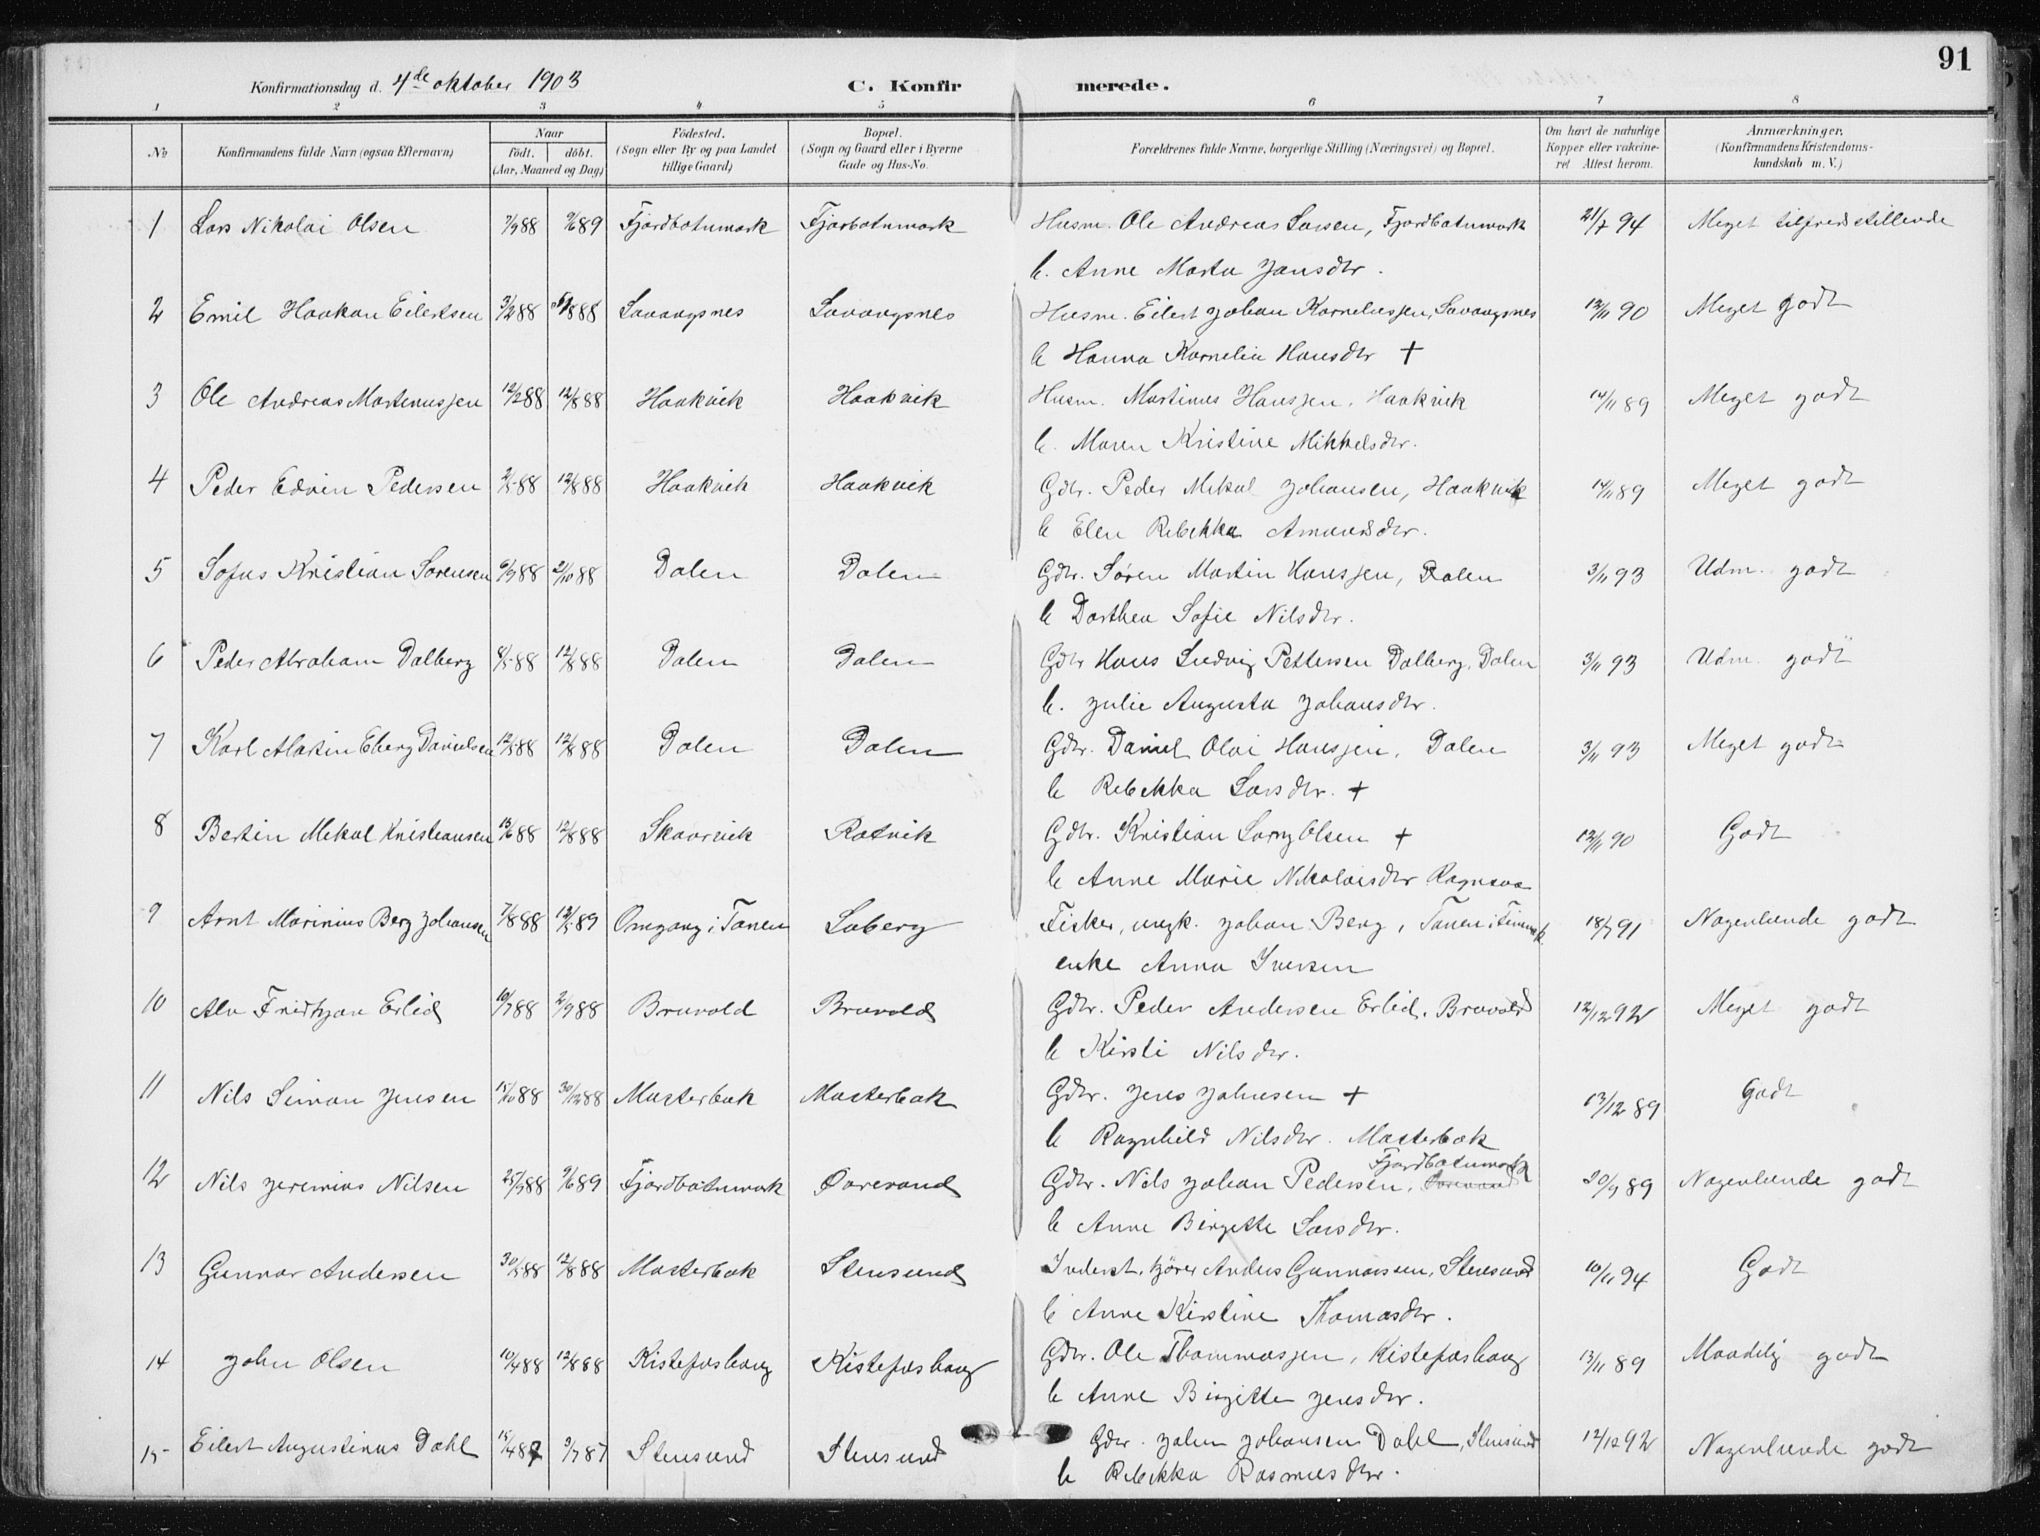 91
Konfirmationsdag d. 4de oktober 1903 C. Konfirmerede.
1 2 3 4 5 6 7 8
No Konfirmandens fulde Navn (ogsaa Efternavn) Naar født. døbt. (Aar, Maaned og Dag) Fødested. (Sogn eller By og paa Landet tillige Gaard) Bopæl. (Sogn og Gaard eller i Byerne Gade og Hus-No. Forældrenes fulde Navne, borgerlige Stilling (Næringsvei) og Bopæl. Om havt de naturlige Kopper eller vakcineret Attest herom. Anmærkninger. (Konfirmandens Kristendomskundskab m. V.)
1 Lars Nikolai Olsen 7/9 88 9/6 89 Fjordbotnmark Fjorbotnmark Husm. Ole Andreas Larsen, Fjordbotnmark 21/7 94 Meget tilfredsstillende
h. Anne Marta Jansdtr.
2 Emil Haakon Eilertsen 88 88 Lavangsnes Lavangsnes Husm. Eilert Johan Korneliussen, Lavangsnes 13/11 90 Meget godt
h Hanna Kornelia Hansdtr +
3 Ole Andreas Martinussen 12/2 88 12/8 88 Haakvik Haakvik Husm. Martinus Hanssen, Haakvik 14/11 89 Meget godt
h. Maren Kristine Mikkelsdtr.
4 Peder Edvin Pedersen 2/5 88 12/8 88 Haakvik Haakvik Gdbr. Peder Mikal Johansen, Haakvik 14/11 89 Meget godt
h Elen Rebekka Amundsdtr.
5 Sofus Kristian Sørensen 6/9 88 21/10 88 Dalen Dalen Gdbr. Søren Martin Hanssen, Dalen 3/11 93 Udm. godt
h Dorthea Sofie Nilsdtr.
6 Peder Abraham Dalberg 8/5 88 12/8 88 Dalen Dalen Gdbr Hans Ludvig Pettersen Dalberg, Dalen 3/11 93 Udm. godt
h. Julie Augusta Johansdtr.
7 Karl Martin Eberg Danielsen 12/5 88 12/8 88 Dalen Dalen Gdbr. Daniel Olai Hanssen, Dalen 3/11 93 Meget godt
h Rebekka Larsdtr. +
8 Bertin Mikal Kristiansen 13/6 88 12/8 88 Skaarvik Rotvik Gdbr. Kristian Olsen + 13/11 90 Godt
h Anne Marie Nikolaisdtr
9 Arnt Marinius Berg Johansen 7/8 88 12/5 89 Omgang i Tanen Soberg Fisker, ungk. Johan Berg, Tanen i 18/7 91 Nogenlunde godt
enke Anna Iversen
10 Alv Fridtjov Erlid 10/7 88 2/9 88 Bruvold Bruvold Gdbr. Peder Andersen Erlid, Bruvold 12/12 92 Meget godt
h Kirsti Nilsdtr.
11 Nils Simon Jensen 15/10 88 30/12 88 Mosterbak Mosterbak Gdbr. Jens Johnsen + 13/12 89 Godt
h Ragnhild Nilsdtr. Mosterbak
12 Nils Jeremias Nilsen 25/9 88 9/6 89 Fjordbotnmark Øvrevand Gdbr. Nils Johan Pedersen, Fjordbotnmark 30/9 89 Nogenlunde godt
h Anne Birgitte Larsdtr.
13 Gunnar Andersen 30/5 88 12/8 88 Mosterbak Stensund Inderst, kjører Anders Gunnarssen, Stensund 10/11 94 Godt
h Anne Kirstine Thomasdtr.
14 John Olsen 10/4 88 12/8 88 Kistefoshaug Kistefoshaug Gdbr. Ole Thommassen, Kistefoshaug 13/11 89 Maadelig godt
h Anne Birgitte Jensdtr.
15 Eilert Augustinus Dahl 15/4 87 9/7 87 Stensund Stensund Gdbr. John Johansen Dahl, Stensund 12/12 92 Nogenlunde godt
h Rebekka Rasmusdtr.